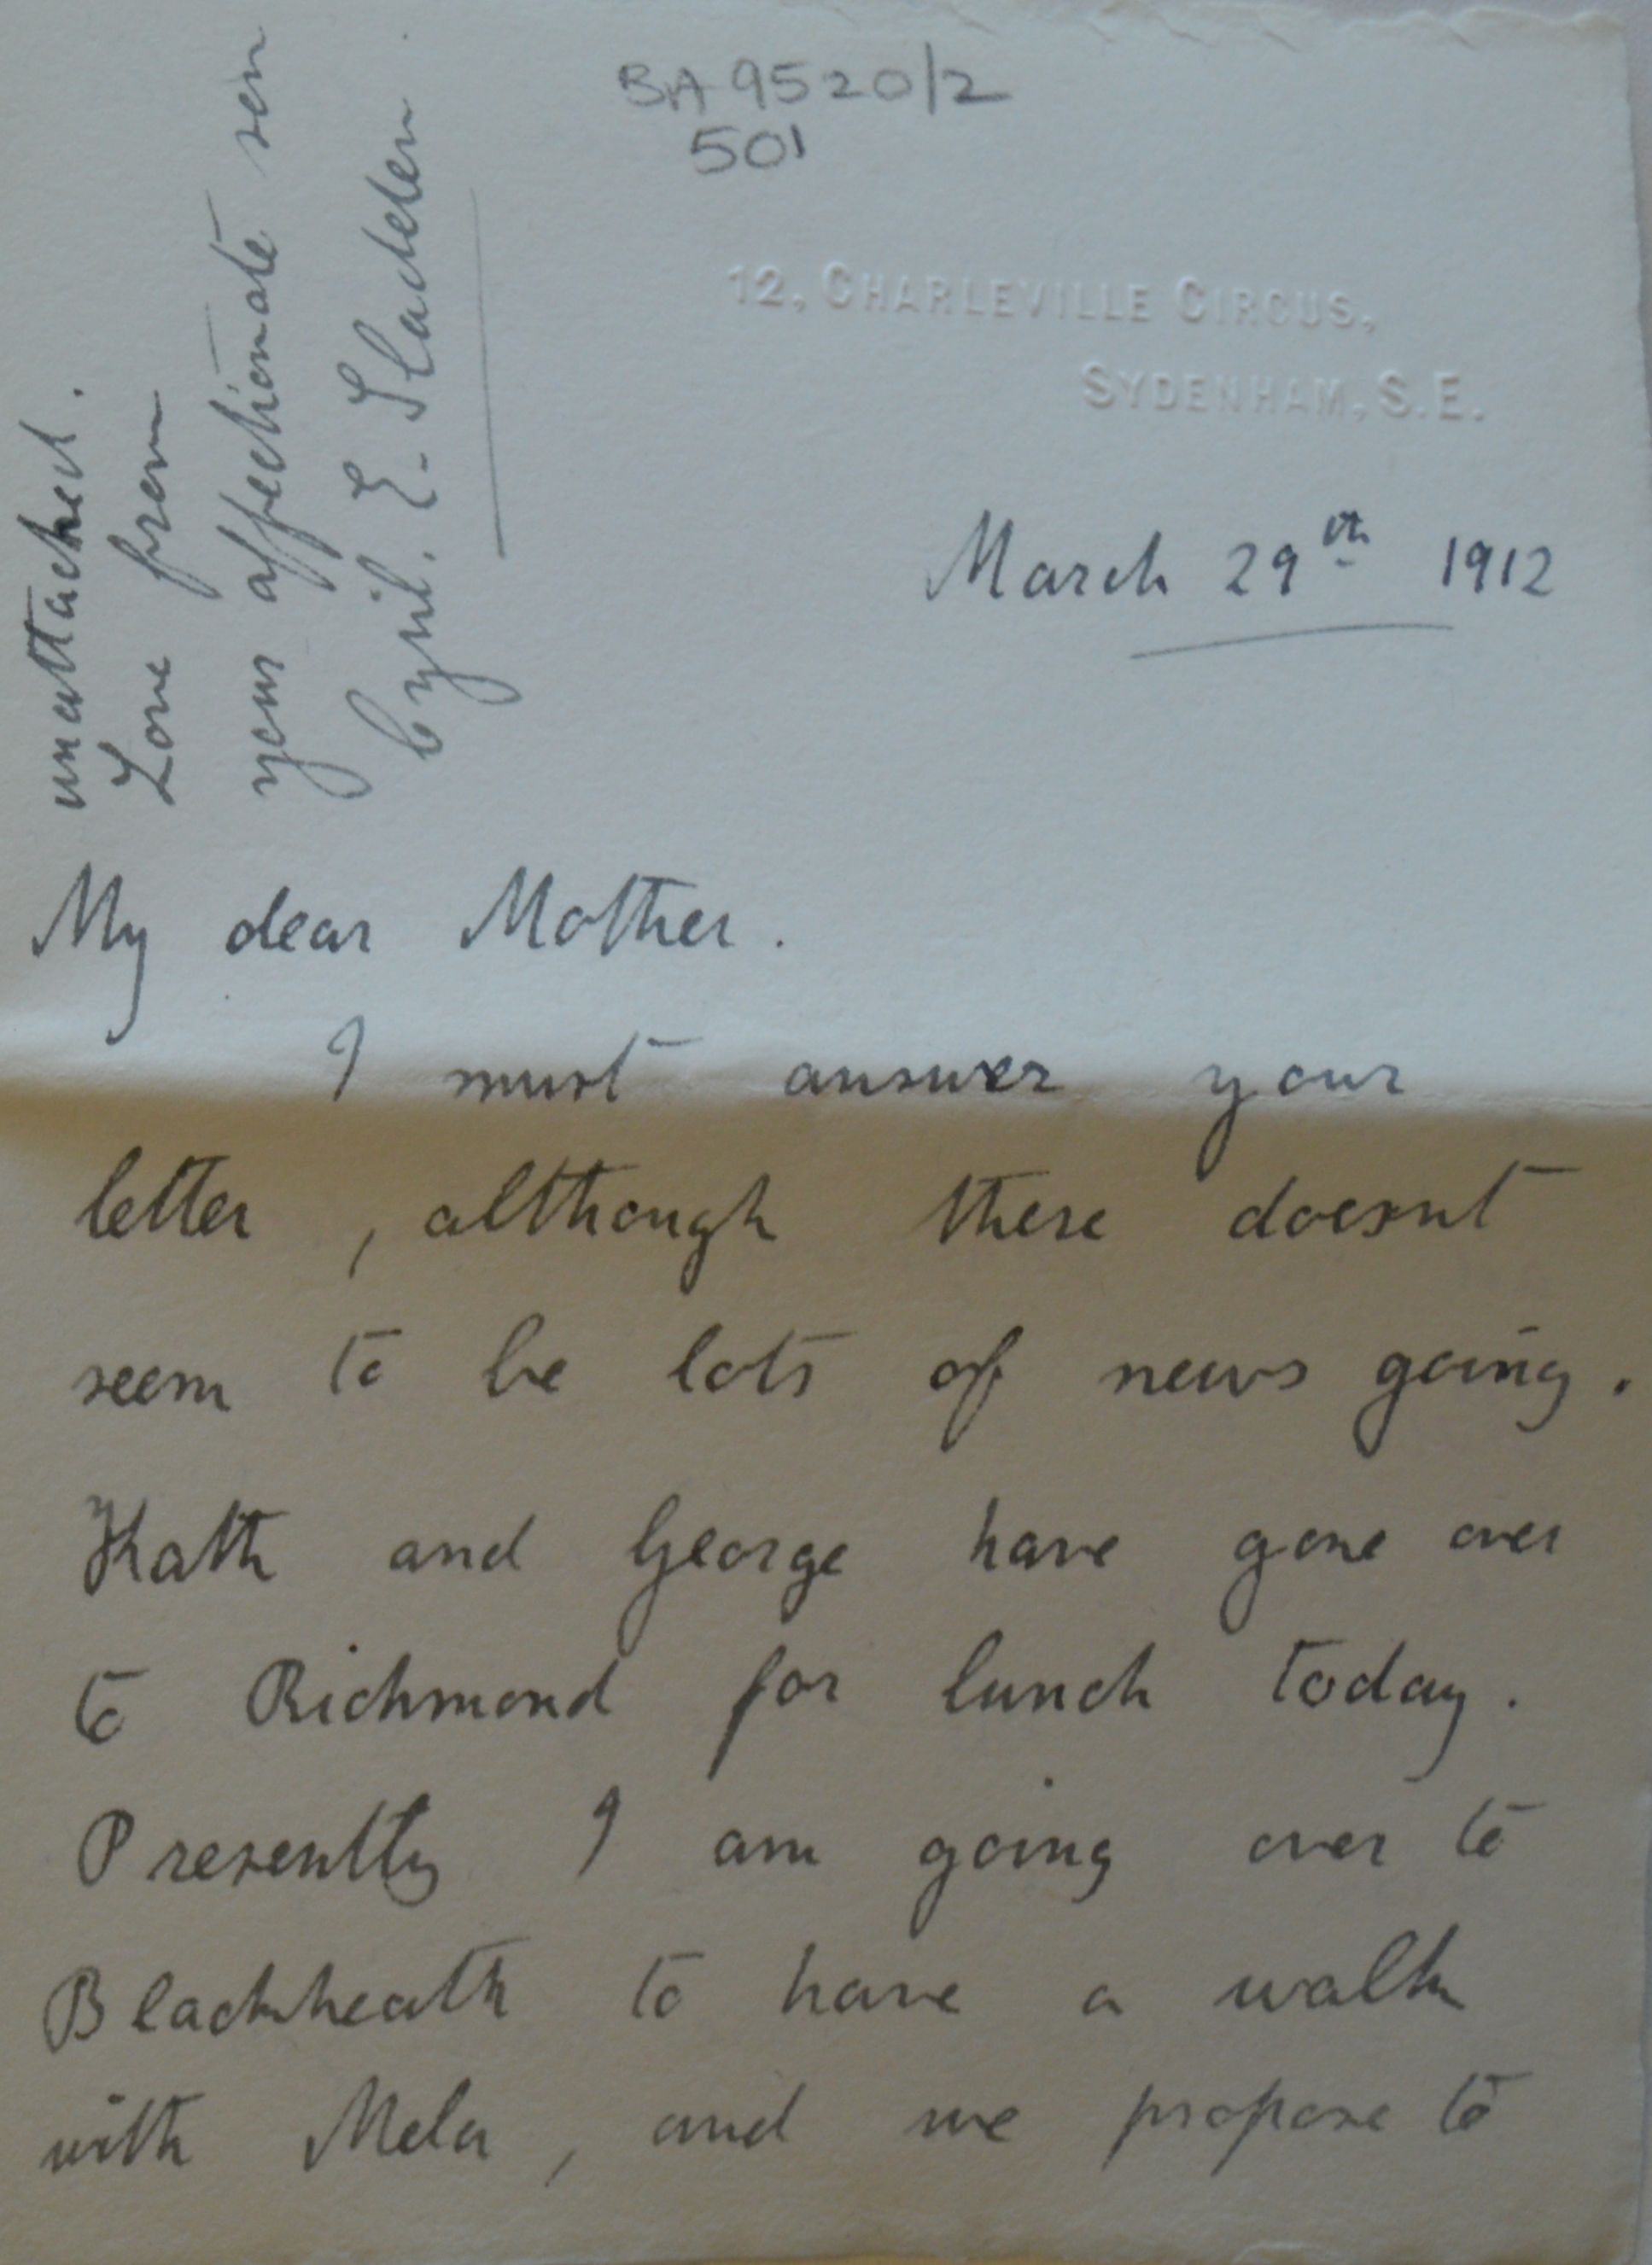 BA 9520/2
501
12, CHARLEVILLE CIRCUS,
SYDENHAM, S.E.
March 29th 1912
My dear Mother.
I must answer your
letter, although there doesnt
seem to be lots of news going.
Kath and George have gone over
to Richmond for lunch today.
Presently I am going over to
Blackheath to have a walk
with Mela, and we propose to
unattached.
Love from
your affectionate son
Cyril. E. Sladden.